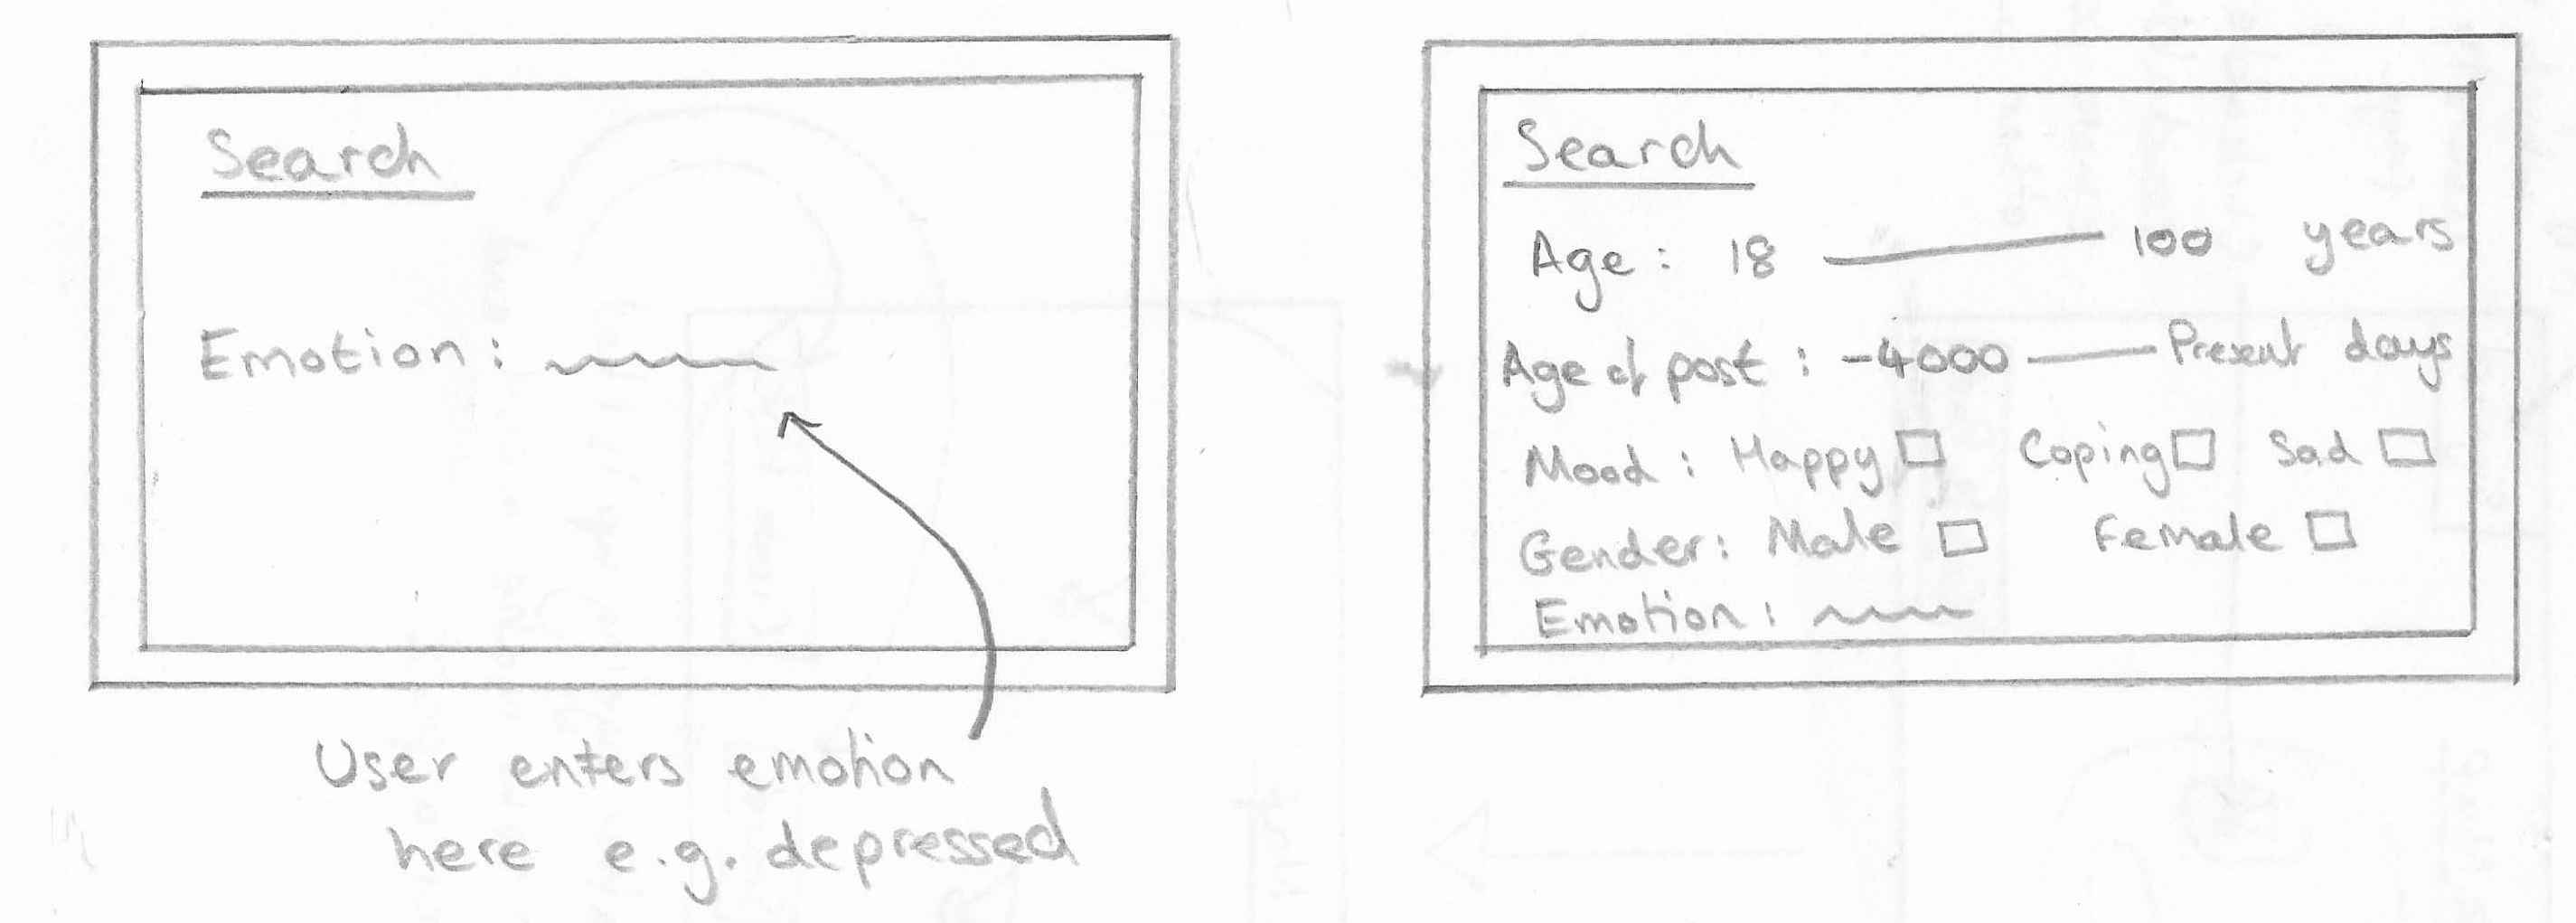 Search
Emotion :
User enters emotion
here e.g. depressed
Search
Age : 18 100 years
Age of post : -4000 Present days
Mood : Happy Coping Sad
Gender : Male Female
Emotion :